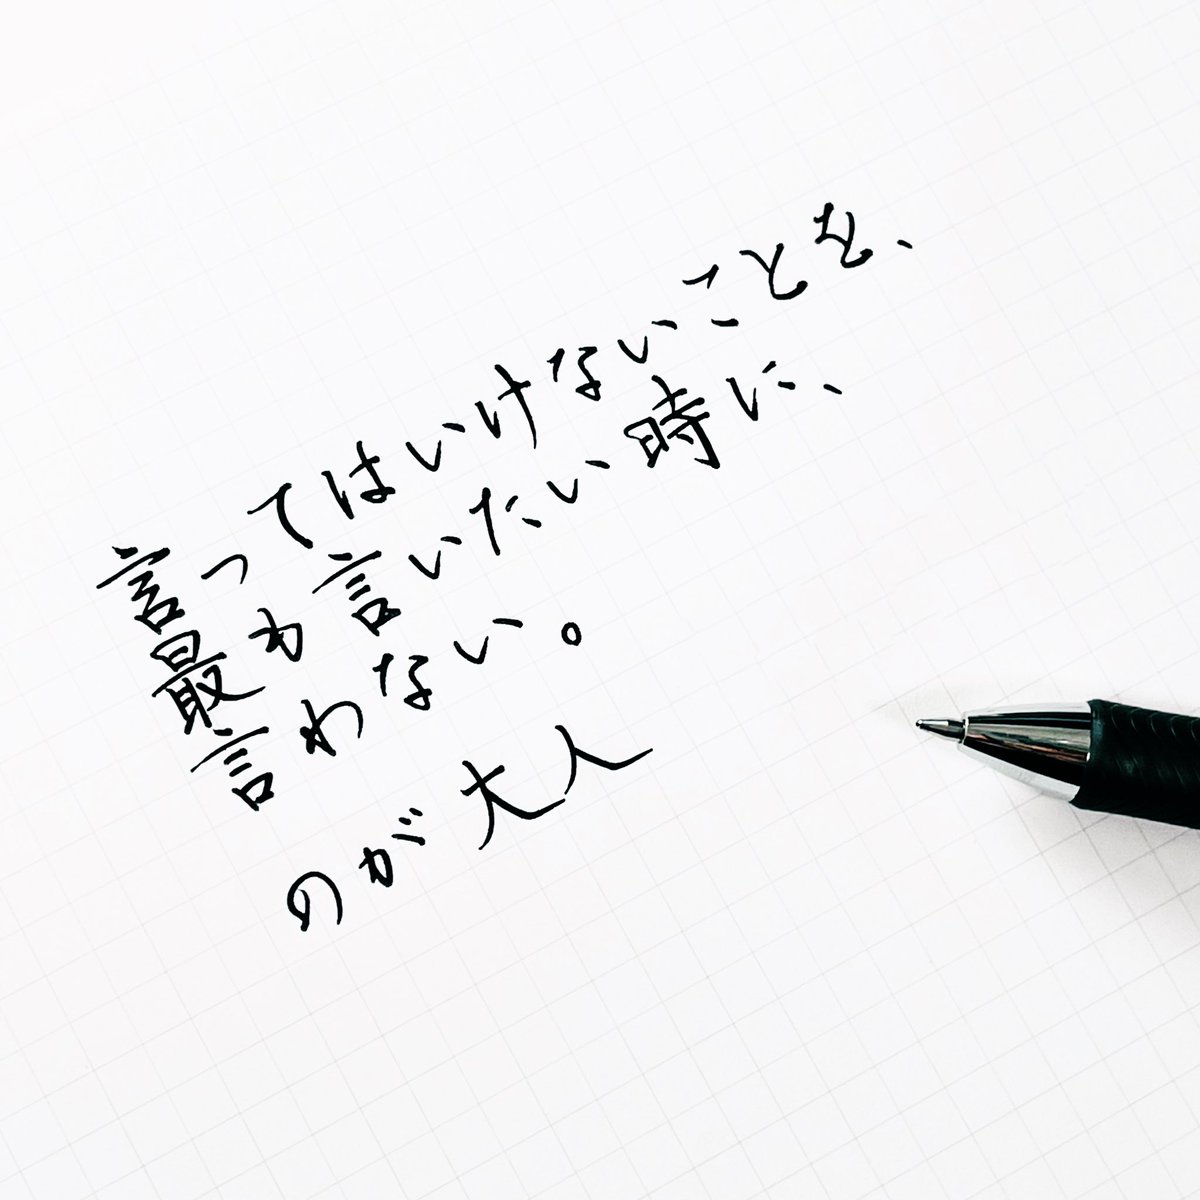 言ってはいけないことを、
最も言いたい時に、
言わない。
のが大人